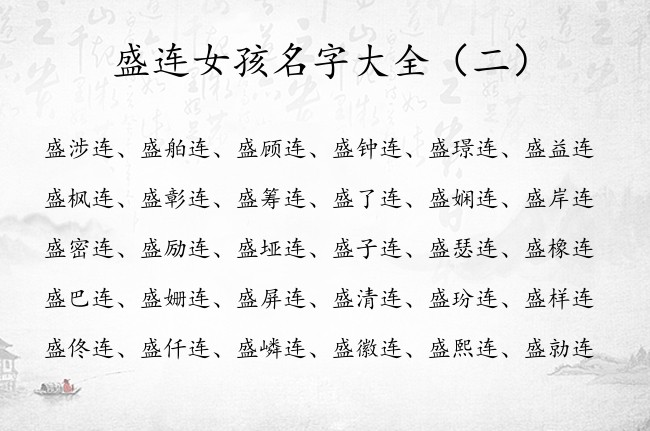 盛连女孩名字大全（二）
盛涉连、盛舶连、盛顾连、盛钟连、盛璟连、盛益连
盛枫连、盛彰连、盛筹连、盛了连、盛娴连、盛岸连
盛密连、盛励连、盛垭连、盛子连、盛瑟连、盛橡连
盛巴连、盛姗连、盛屏连、盛清连、盛玢连、盛样连
盛佟连、盛仟连、盛嶙连、盛徽连、盛熙连、盛勍连